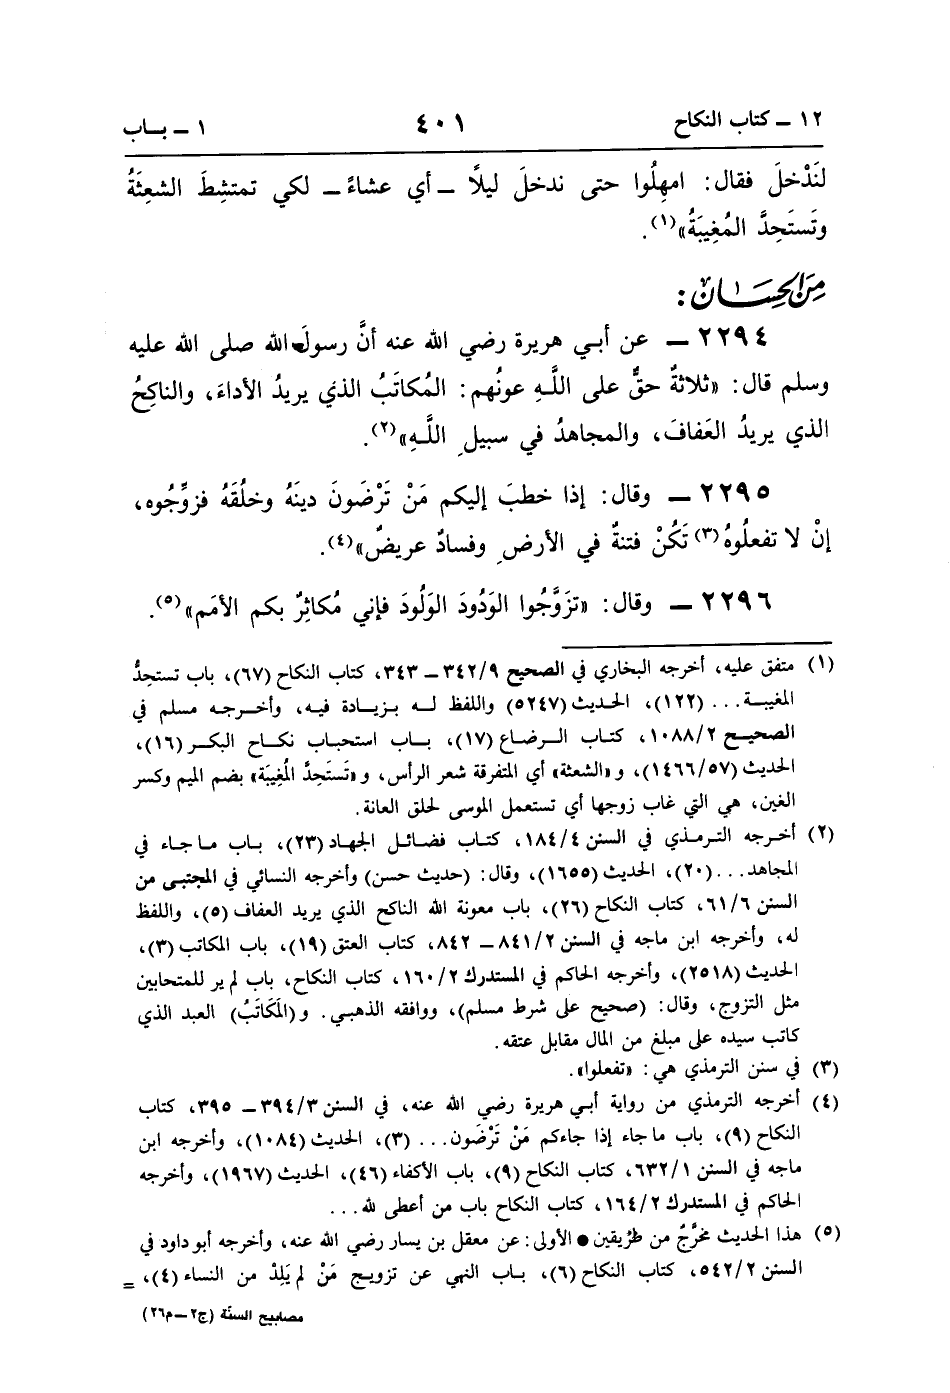 ١٢ ـ كتاب النكاح ٤٠١ ١ ـ بـاب
لنَدْخلَ فقال: امهِلُوا حتى ندخلَ ليلًا ـ أي عشاءً ـ لكي تمتشِطَ الشعِثَةُ
وتَستَحِدَّ المُغِيبَةُ»(١).
مِنَ الحِسَان:
٢٢٩٤ ـ عن أبي هريرة رضي الله عنه أنَّ رسولَ الله صلى الله عليه
وسلم قال: «ثلاثةٌ حقٌّ على اللَّهِ عونُهم: المُكاتَبُ الذي يريدُ الأداءَ، والناكِحُ
الذي يريدُ العَفافَ، والمجاهدُ في سبيلِ اللَّهِ»(٢).
٢٢٩٥ ـ وقال: إذا خطبَ إليكم مَنْ تَرْضَونَ دينَهُ وخلُقَهُ فزوِّجُوه،
إنْ لا تفعلُوهُ(٣) تَكُنْ فتنةٌ في الأرضِ وفسادٌ عريضٌ»(٤).
٢٢٩٦ ـ وقال: «تزَوَّجُوا الوَدُودَ الوَلُودَ فإني مُكاثِرٌ بكم الأمَم»(٥).
(١) متفق عليه، أخرجه البخاري في الصحيح ٣٤٢/٩ ـ ٣٤٣، كتاب النكاح (٦٧)، باب تستحِدُّ
المغيبـة... (١٢٢)، الحديث (٥٢٤٧) واللفظ لـه بـزيـادة فيـه، وأخـرجـه مسلم في
الصحيـح ١٠٨٨/٢، كتاب الـرضـاع (١٧)، بـاب استحبـاب نكـاح البكـر (١٦)،
الحديث (١٤٦٦/٥٧)، و«الشعثة» أي المتفرقة شعر الرأس، و«تَستَحِدَّ المُغِيبَة» بضم الميم وكسر
الغين، هي التي غاب زوجها أي تستعمل الموسى لحلق العانة.
(٢) أخـرجه التـرمـذي في السنن ١٨٤/٤، كتـاب فضـائـل الجهـاد (٢٣)، بـاب مـا جـاء في
المجاهد... (٢٠)، الحديث (١٦٥٥)، وقال: (حديث حسن) وأخرجه النسائي في المجتبى من
السنن ٦١/٦، كتاب النكاح (٢٦)، باب معونة الله الناكح الذي يريد العفاف (٥)، واللفظ
له، وأخرجه ابن ماجه في السنن ٨٤١/٢ ـ ٨٤٢، كتاب العتق (١٩)، باب المكاتب (٣)،
الحديث (٢٥١٨)، وأخرجه الحاكم في المستدرك ١٦٠/٢، كتاب النكاح، باب لم ير للمتحابين
مثل التزوج، وقال: (صحيح على شرط مسلم)، ووافقه الذهبي. و(المَكَاتَبُ) العبد الذي
كاتب سيده على مبلغ من المال مقابل عتقه.
(٣) في سنن الترمذي هي: «تفعلوا».
(٤) أخرجه الترمذي من رواية أبي هريرة رضي الله عنه، في السنن ٣٩٤/٣ ـ ٣٩٥، كتاب
النكاح (٩)، باب ما جاء إذا جاءكم مَنْ تَرْضَون... (٣)، الحديث (١٠٨٤)، وأخرجه ابن
ماجه في السنن ٦٣٢/١، كتاب النكاح (٩)، باب الأكفاء (٤٦)، الحديث (١٩٦٧)، وأخرجه
الحاكم في المستدرك ١٦٤/٢، كتاب النكاح باب من أعطى لله...
(٥) هذا الحديث مخرَّجٌ من طريقين • الأولى: عن معقل بن يسار رضي الله عنه، وأخرجه أبو داود في
السنن ٥٤٢/٢، كتاب النكاح (٦)، بـاب النهي عن تزويـج مَنْ لم يَلِدْ من النساء (٤)، =
مصابيح السنّة (ج٢ ـ م٢٦)